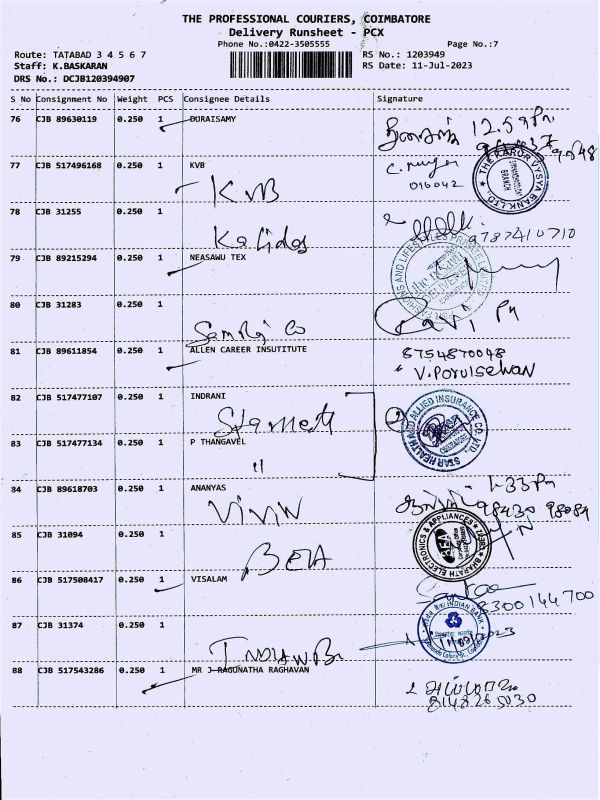 THE PROFESSIONAL COURIERS, COIMBATORE
Delivery Runsheet - PCX
Phone No.:0422-3505555 Page No.:7
Route: TATABAD 3 4 5 6 7 RS No.: 1203949
Staff: K.BASKARAN RS Date: 11-Jul-2023
DRS No.: DCJB120394907
S No Consignment No Weight PCS Consignee Details Signature
76 CJB 89630119 0.250 1 DURAISAMY
12.59 Pm
77 CJB 517496168 0.250 1 KVB
016042
KVB
THE KARUR VYSYA BANK LTD.
BRANCH
78 CJB 31255 0.250 1
Kalidos 9787410710
79 CJB 89215294 0.250 1 NEASAWU TEX
80 CJB 31283 0.250 1
Ravi
81 CJB 89611854 0.250 1 ALLEN CAREER INSUTITUTE
8754870048
V.Porulselvan
82 CJB 517477107 0.250 1 INDRANI
STAR HEALTH AND ALLIED INSURANCE CO. LTD.
83 CJB 517477134 0.250 1 P THANGAVEL
"
84 CJB 89618703 0.250 1 ANANYAS
1-33 Pm
98430 98084
85 CJB 31094 0.250 1
BETA
BHARATH ELECTRONICS & APPLIANCES
86 CJB 517508417 0.250 1 VISALAM
8300144700
87 CJB 31374 0.250 1
INDIAN BANK
88 CJB 517543286 0.250 1 MR J RAGUNATHA RAGHAVAN
8148265030